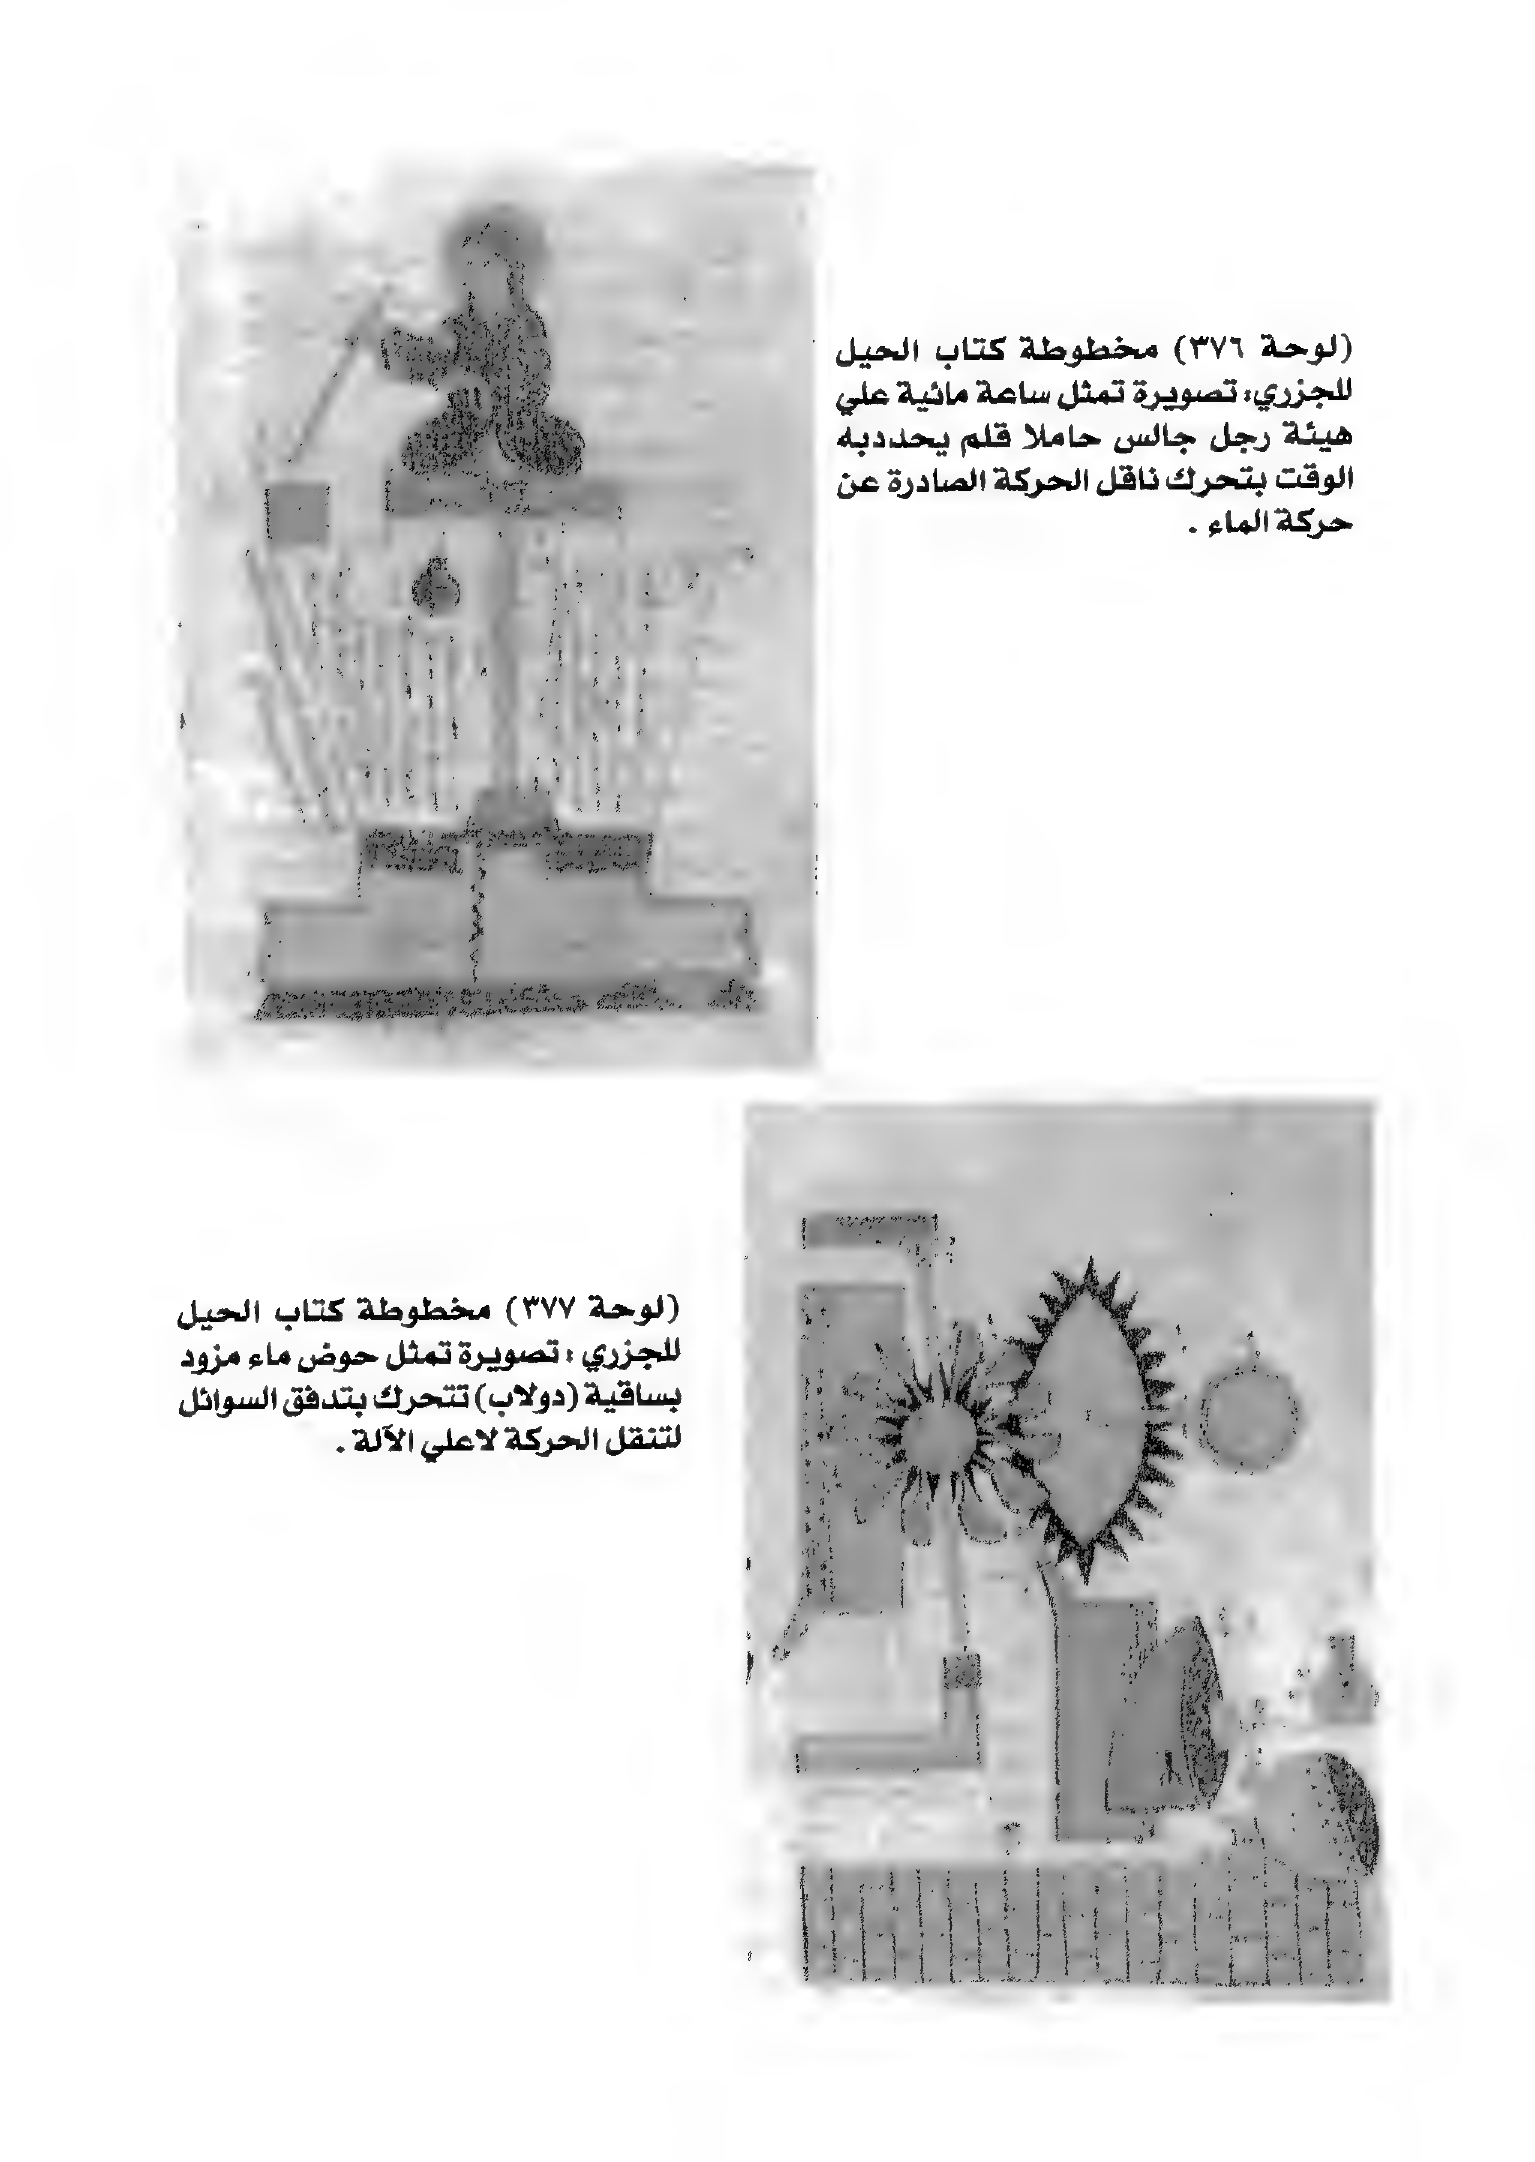 (لوحة ٣٧٦) مخطوطة كتاب الحيل
للجزري: تصويرة تمثل ساعة مائية علي
هيئة رجل جالس حاملا قلم يحددبه
الوقت بتحرك ناقل الحركة الصادرة عن
حركة الماء .
(لوحة ٣٧٧) مخطوطة كتاب الحيل
للجزري : تصويرة تمثل حوض ماء مزود
بساقية (دولاب) تتحرك بتدفق السوائل
لتنقل الحركة لاعلي الآلة .